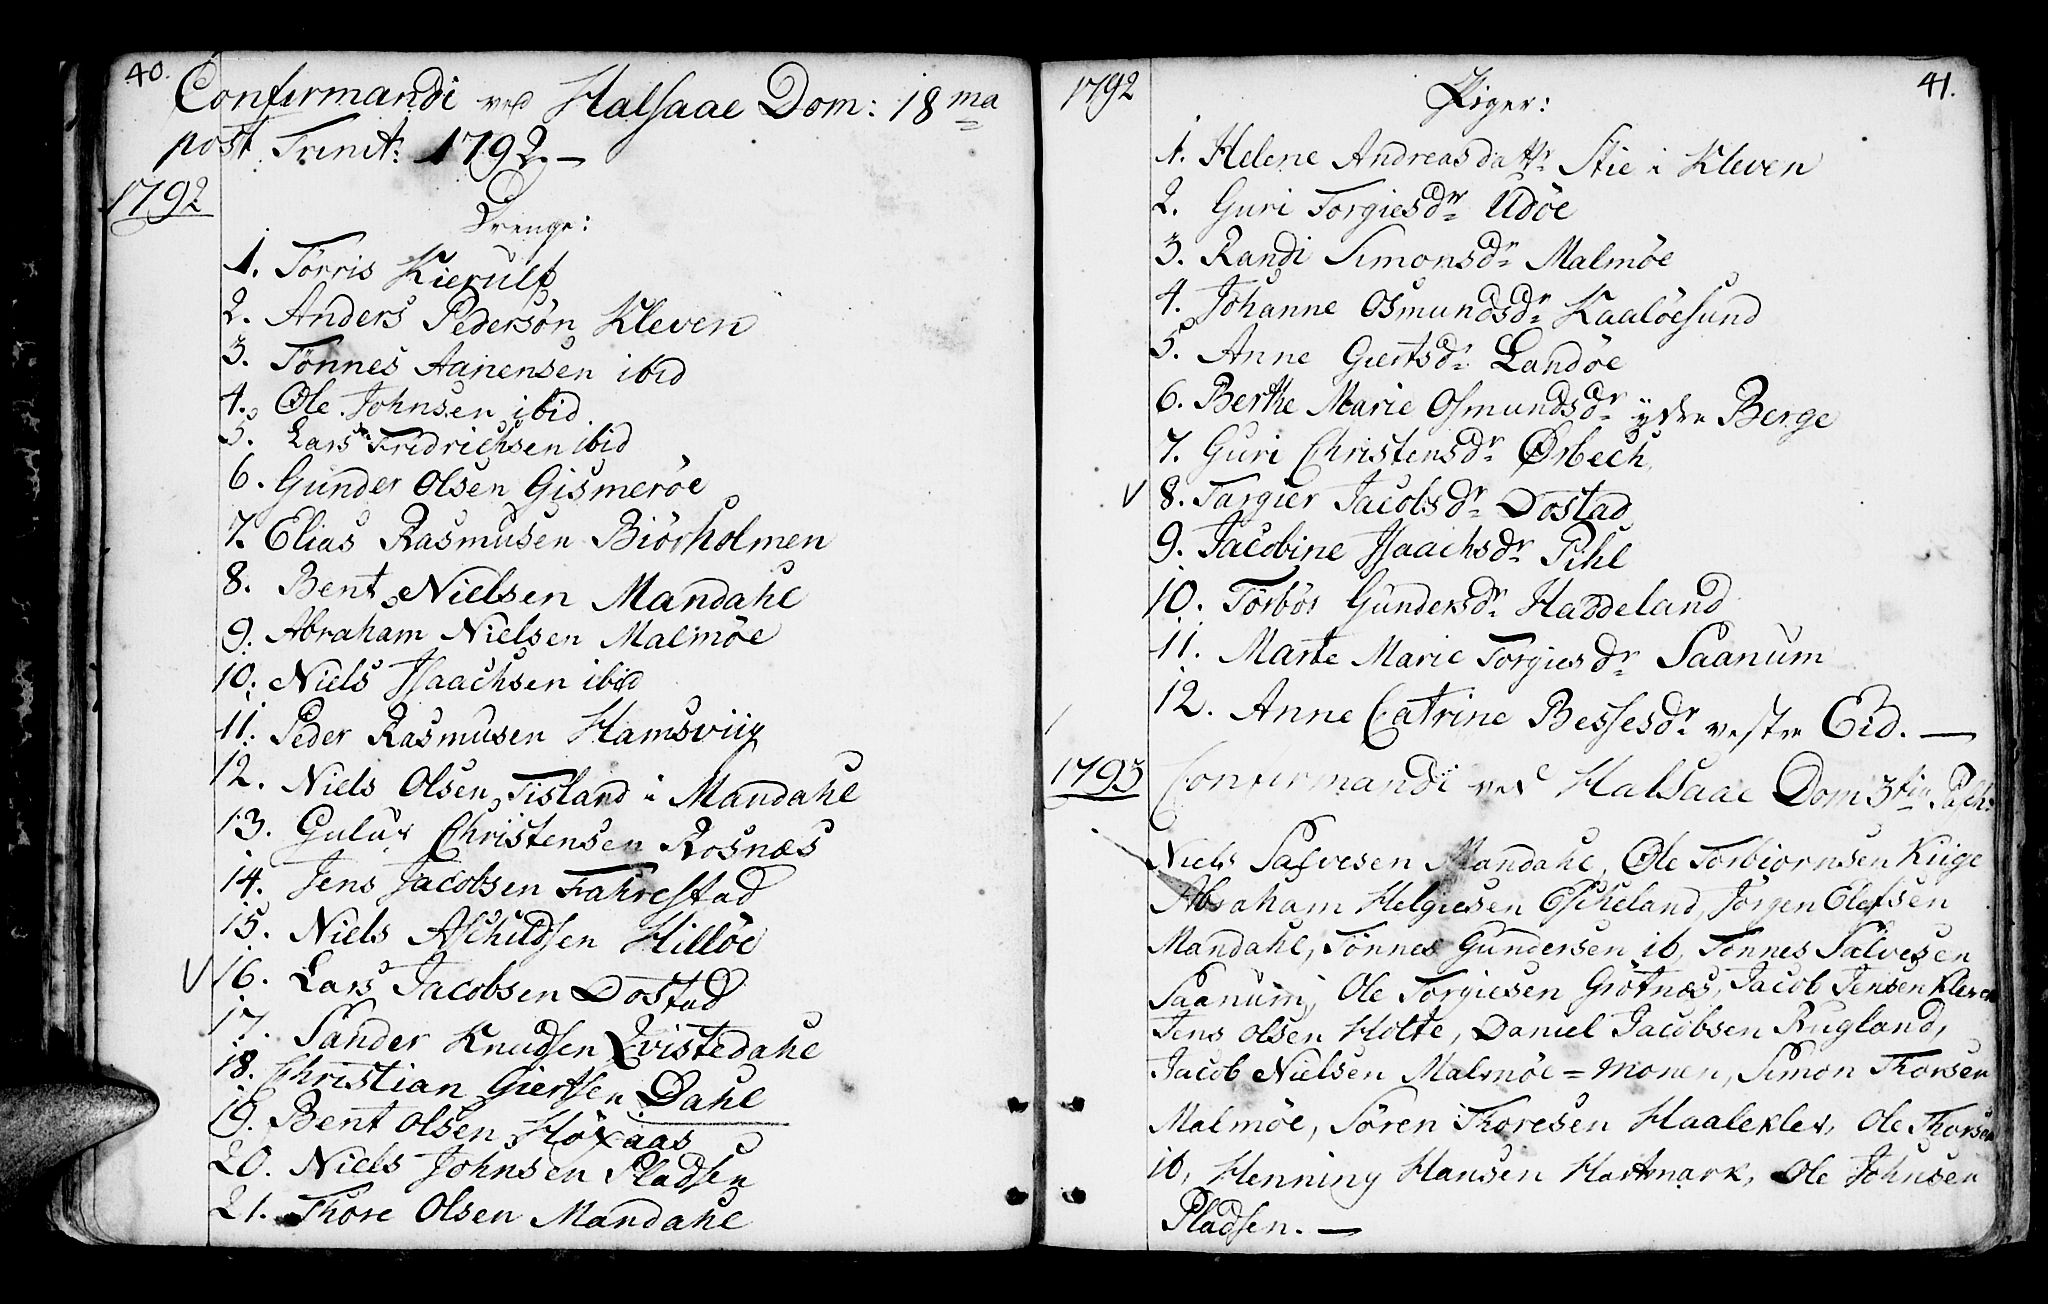 40.
Confirmandi ved Halsaae Dom: 18 ma
post Trinit: 1792. —
1792
Drenge:
1. Törris Kierulf
2. Anders Pedersön Kleven
3. Tönnes Aanensen ibid
4. Ole Johnsen ibid
5. Lars Fridrichsen ibid
6. Gunder Olsen Gismeröe
7. Elias Rasmusen Biörholmen
8. Bent Nielsen Mandahl
9. Abraham Nielsen Malmöe
10. Niels Isaachsen ibid
11. Peder Rasmusen Hamsviig
12. Niels Olsen Tisland i Mandahl
13. Gulüv Christensen Rosnæs
14. Jens Jacobsen Fahrestad
15. Niels Aschildsen Hillöe
V 16. Lars Jacobsen Dostad
17. Sander Knudsen Qvistedahl
18. Christian Giertsen Dahl
19. Bent Olsen Höxaas
20. Niels Johnsen Pladsen
21. Thore Olsen Mandahl
1792
Piger:
41.
1. Helene Andreasdattr Stie i Kleven
2. Guri Torgiesdr Udöe
3. Randi Simonsdr Malmöe
4. Johanne Osmundsdr Kaalöesund
5. Anne Giertsdr Landöe
6. Berthe Marie Osmundsdr ydre Berge
7. Guri Christensdr Ørbech
V 8. Targier Jacobsdr Dostad
9. Jacobine Isaachsdr Pihl
10. Torbör Gundersdr Haddeland
11. Marte Marie Torgiesdr Saanum
12. Anne Catrine Bessesdr vestre Eid. —
1793 Confirmandi ved Halsaae Dom 3tia Pasch:
Niels Salvesen Mandahl, Ole Torbiornsen Kiige
Abraham Helgiesen Escheland, Jörgen Olefsen
Mandahl, Tönnes Gundersen ib, Tönnes Salvesen
Saanum, Ole Torgiesen Grötnæs, Jacob Jensen Kleven
Jens Olsen Holte, Daniel Jacobsen Rugland,
Jacob Nielsen Malmöe = monen, Simon Thorsen
Malmöe, Sören Thoresen Haaleklev, Ole Thorsen
ib, Henning Hansen Hartmark, Ole Johnsen
Pladsen. —